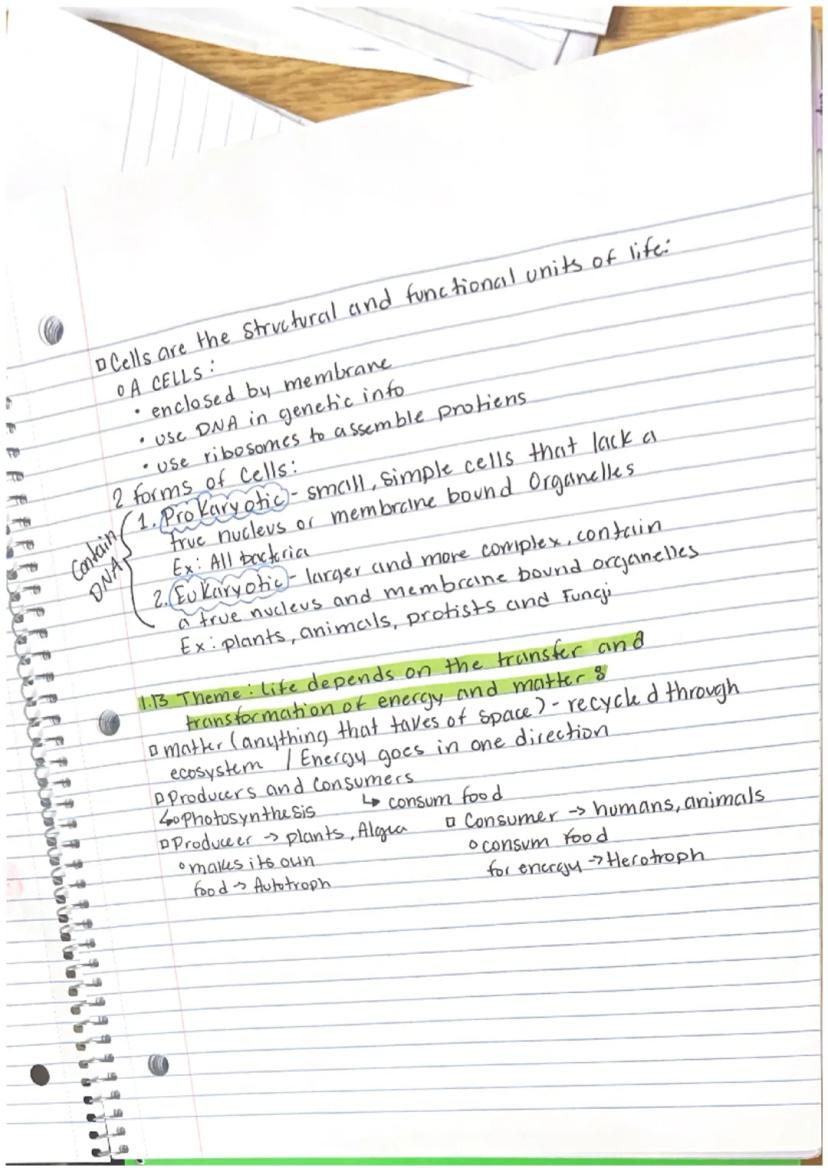 ▫ Cells are the structural and functional units of life:
○ A CELLS:
• enclosed by membrane
• use DNA in genetic info
• use ribosomes to assemble protiens
2 forms of cells:
Contain DNA
1. Prokaryotic - small, simple cells that lack a
true nucleus or membrane bound Organelles
Ex: All bacteria
2. Eukaryotic - larger and more complex, contain
a true nucleus and membrane bound organelles
Ex: plants, animals, protists and Fungi
1.13 Theme: Life depends on the transfer and
transformation of energy and matter
▫ matter (anything that takes of space) - recycled through
ecosystem / Energy goes in one direction
▫ Producers and Consumers
↳ Photosynthesis ↳ consum food
▫ Producer → plants, Algea ▫ Consumer → humans, animals
○ makes its own ○ consum food
food → Autotroph for energy → Herotroph